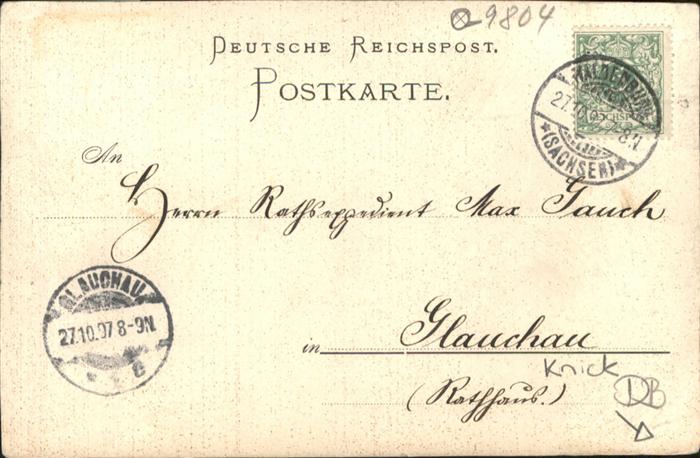 9804
DEUTSCHE REICHSPOST.
POSTKARTE.
WALDENBURG
27.10.97 8-N.
*(SACHSEN)*
REICHSPOST
An
Herrn Rathsexpedient Max Jauch
GLAUCHAU
27.10.97 8-9N.
* c
in Glauchau
Knick
(Rathhaus.)
DB